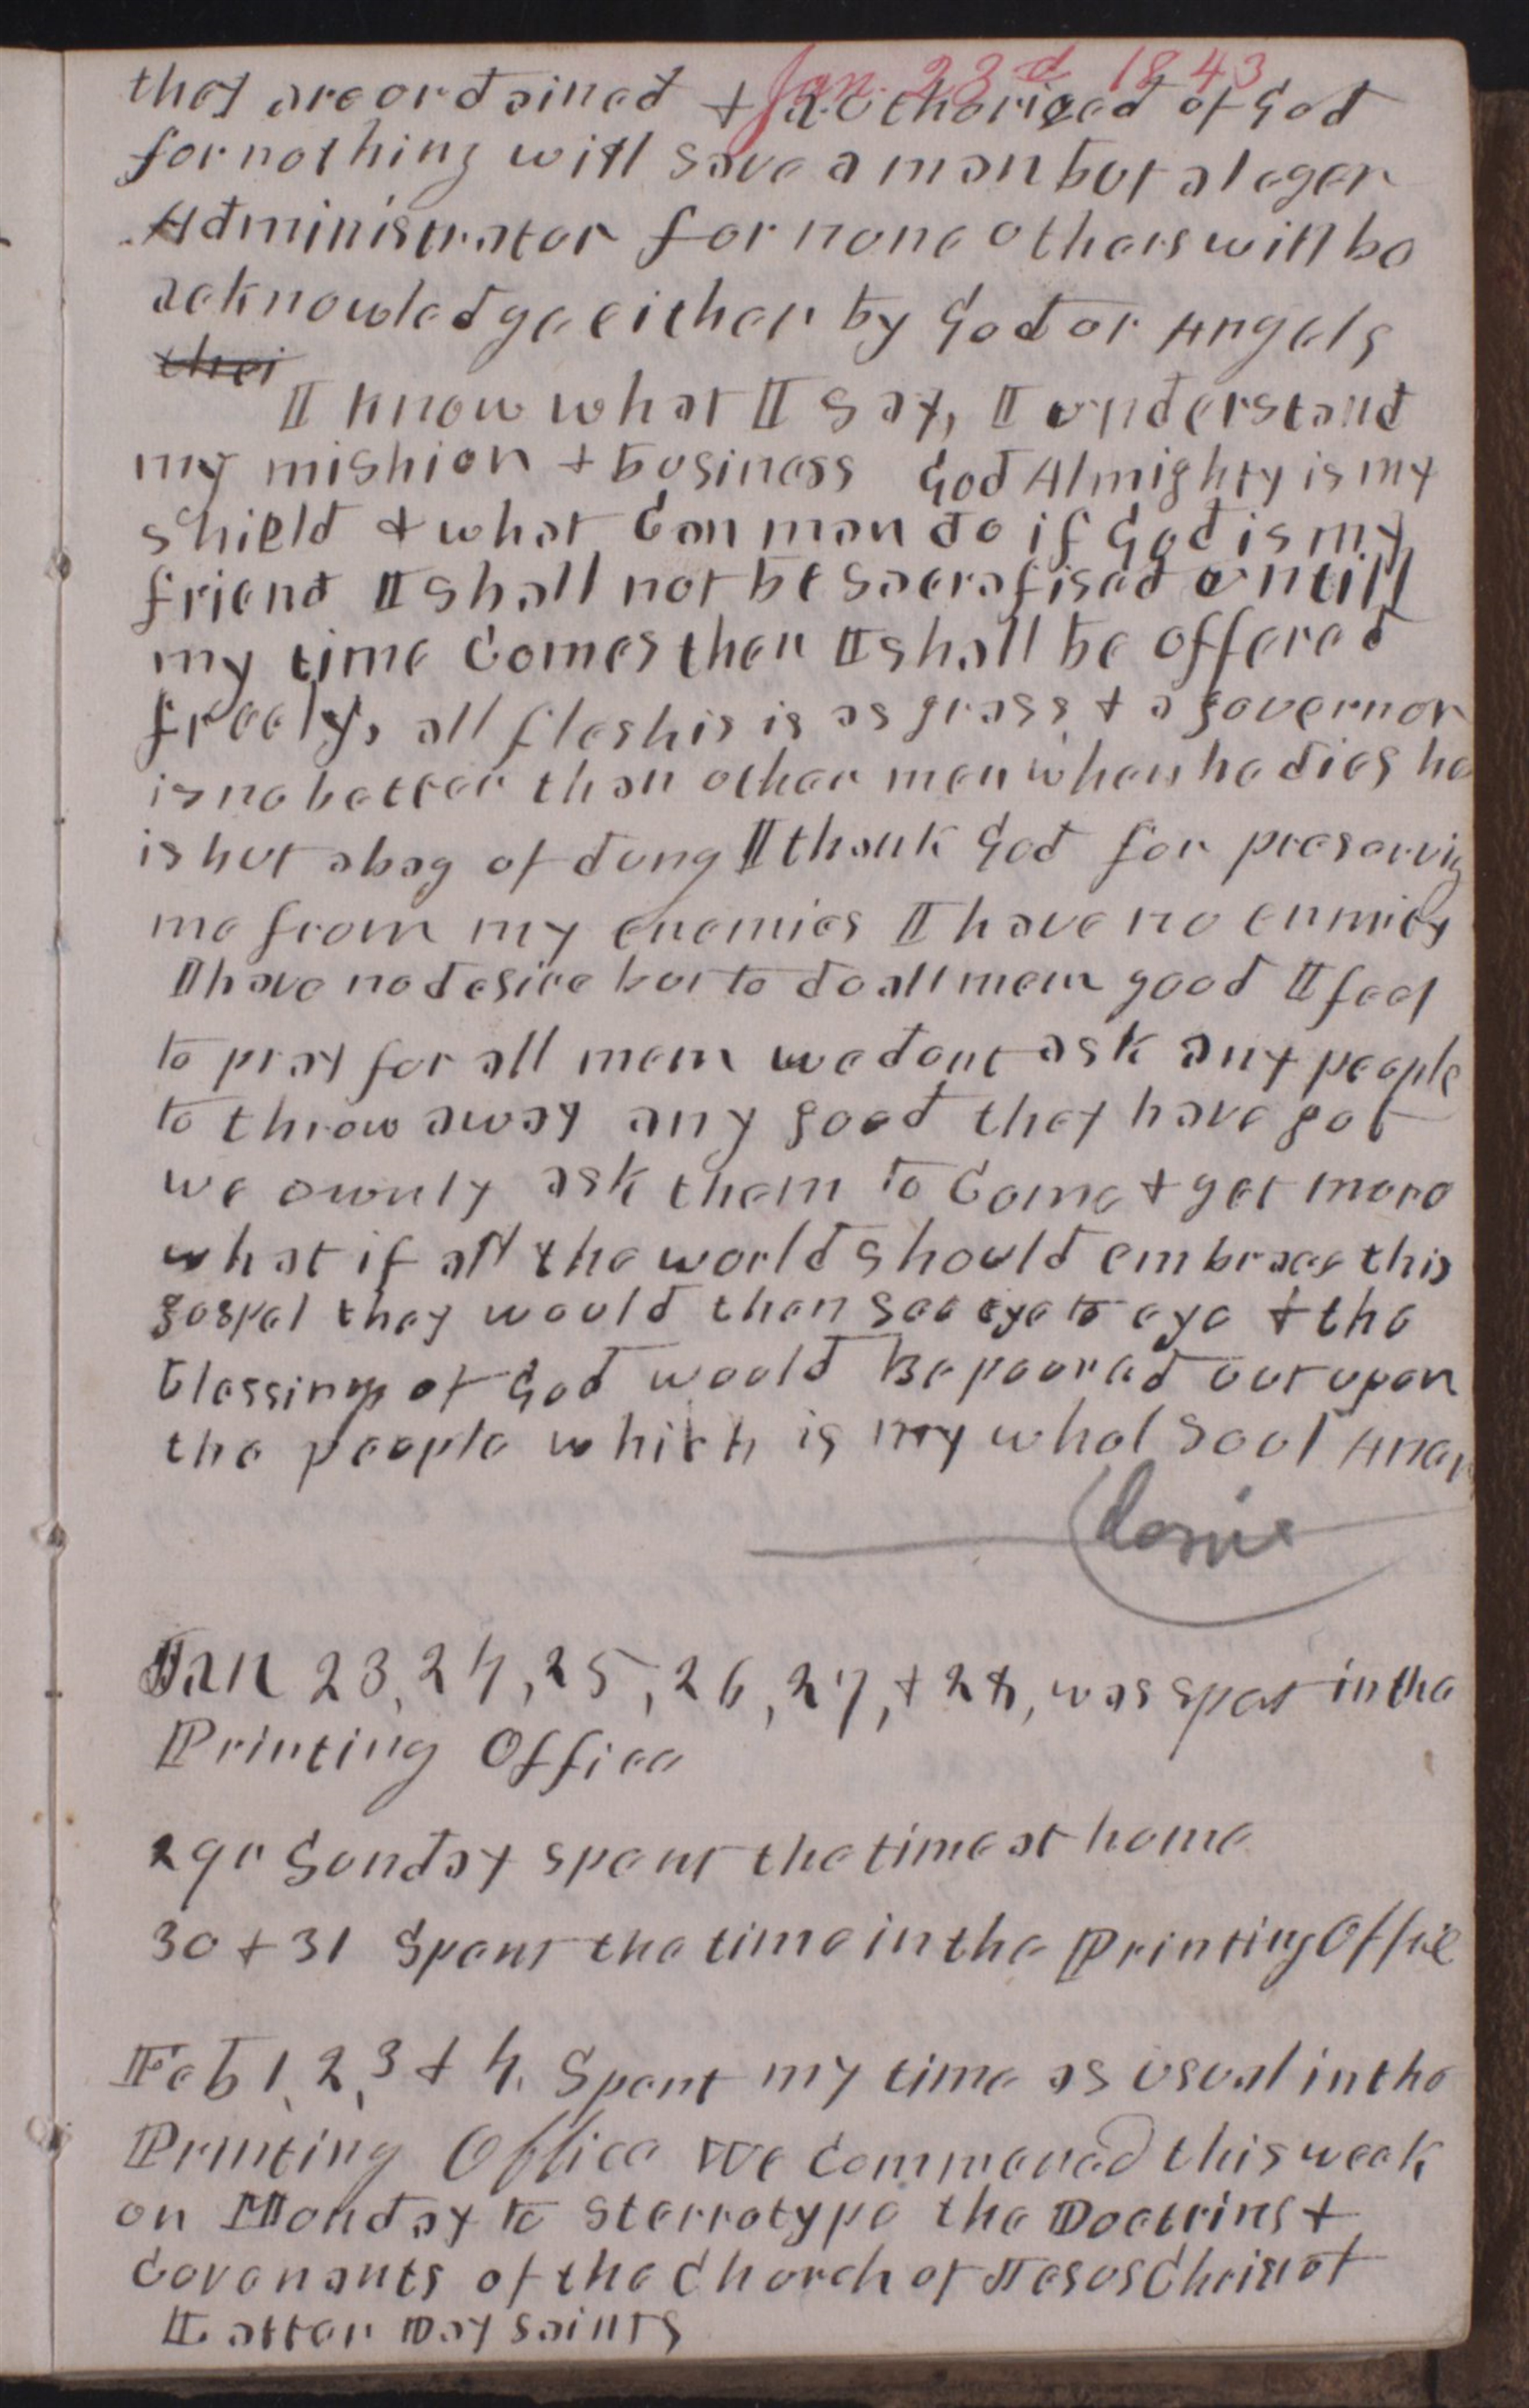 Jan. 22d 1843
that are ordained & authorized of God
for nothing will save a man but a leger
Administrator for none others will be
acknowledge either by God or Angels
thei
I know what I say, I understand
my mishion & business God Almighty is my
shield & what Can man do if God is my
friend I shall not be sacrafised untill
my time Comes then I shall be offered
freely, all flesh is is as grass & a governor
is no better than other men when he dies he
is but a bag of dung I thank God for preserving
me from my enemies I have no enmity
I have no desire but to do all men good I feel
to pray for all men we dont ask any people
to throw away any good they have got
we ownly ask them to Come & get more
what if all the world should embrace this
gospel they would then see eye to eye & the
blessings of God would Be poured out upon
the people which is my whol soul Amen
Jan 23, 24, 25, 26, 27, & 28, was spent in the
Printing Office
29th Sunday spent the time at home
30 & 31 Spent the time in the Printing Office
Feb 1, 2, 3 & 4. Spent my time as usual in the
Printing Office We Commenced this week
on Monday to Sterrotype the Doctrins &
Covenants of the Church of Jesus Christ of
Latter Day Saints